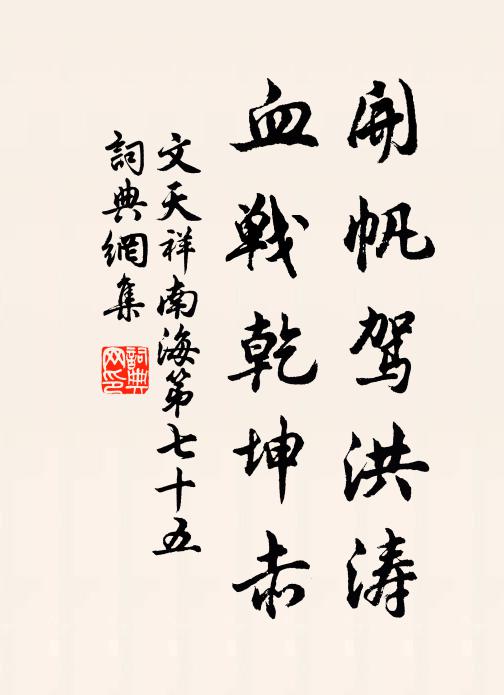 開帆駕洪涛
血戦乾坤赤
文天祥南海第七十五
詞典網集
詞典網印